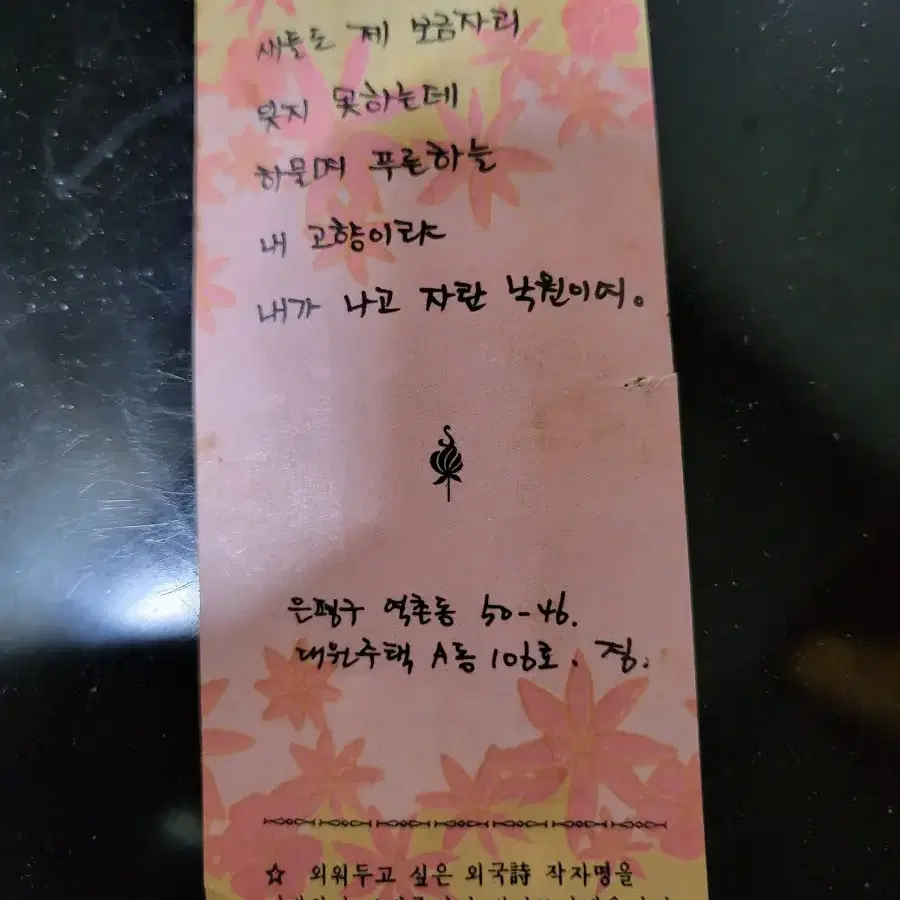 새들도 제 보금자리
잊지 못하는데
하물며 푸른하늘
내 고향이랴
내가 나고 자란 낙원이여。
은평구 역촌동 50-46.
대원주택 A동 106호. 짐.
☆ 외워두고 싶은 외국詩 작자명을